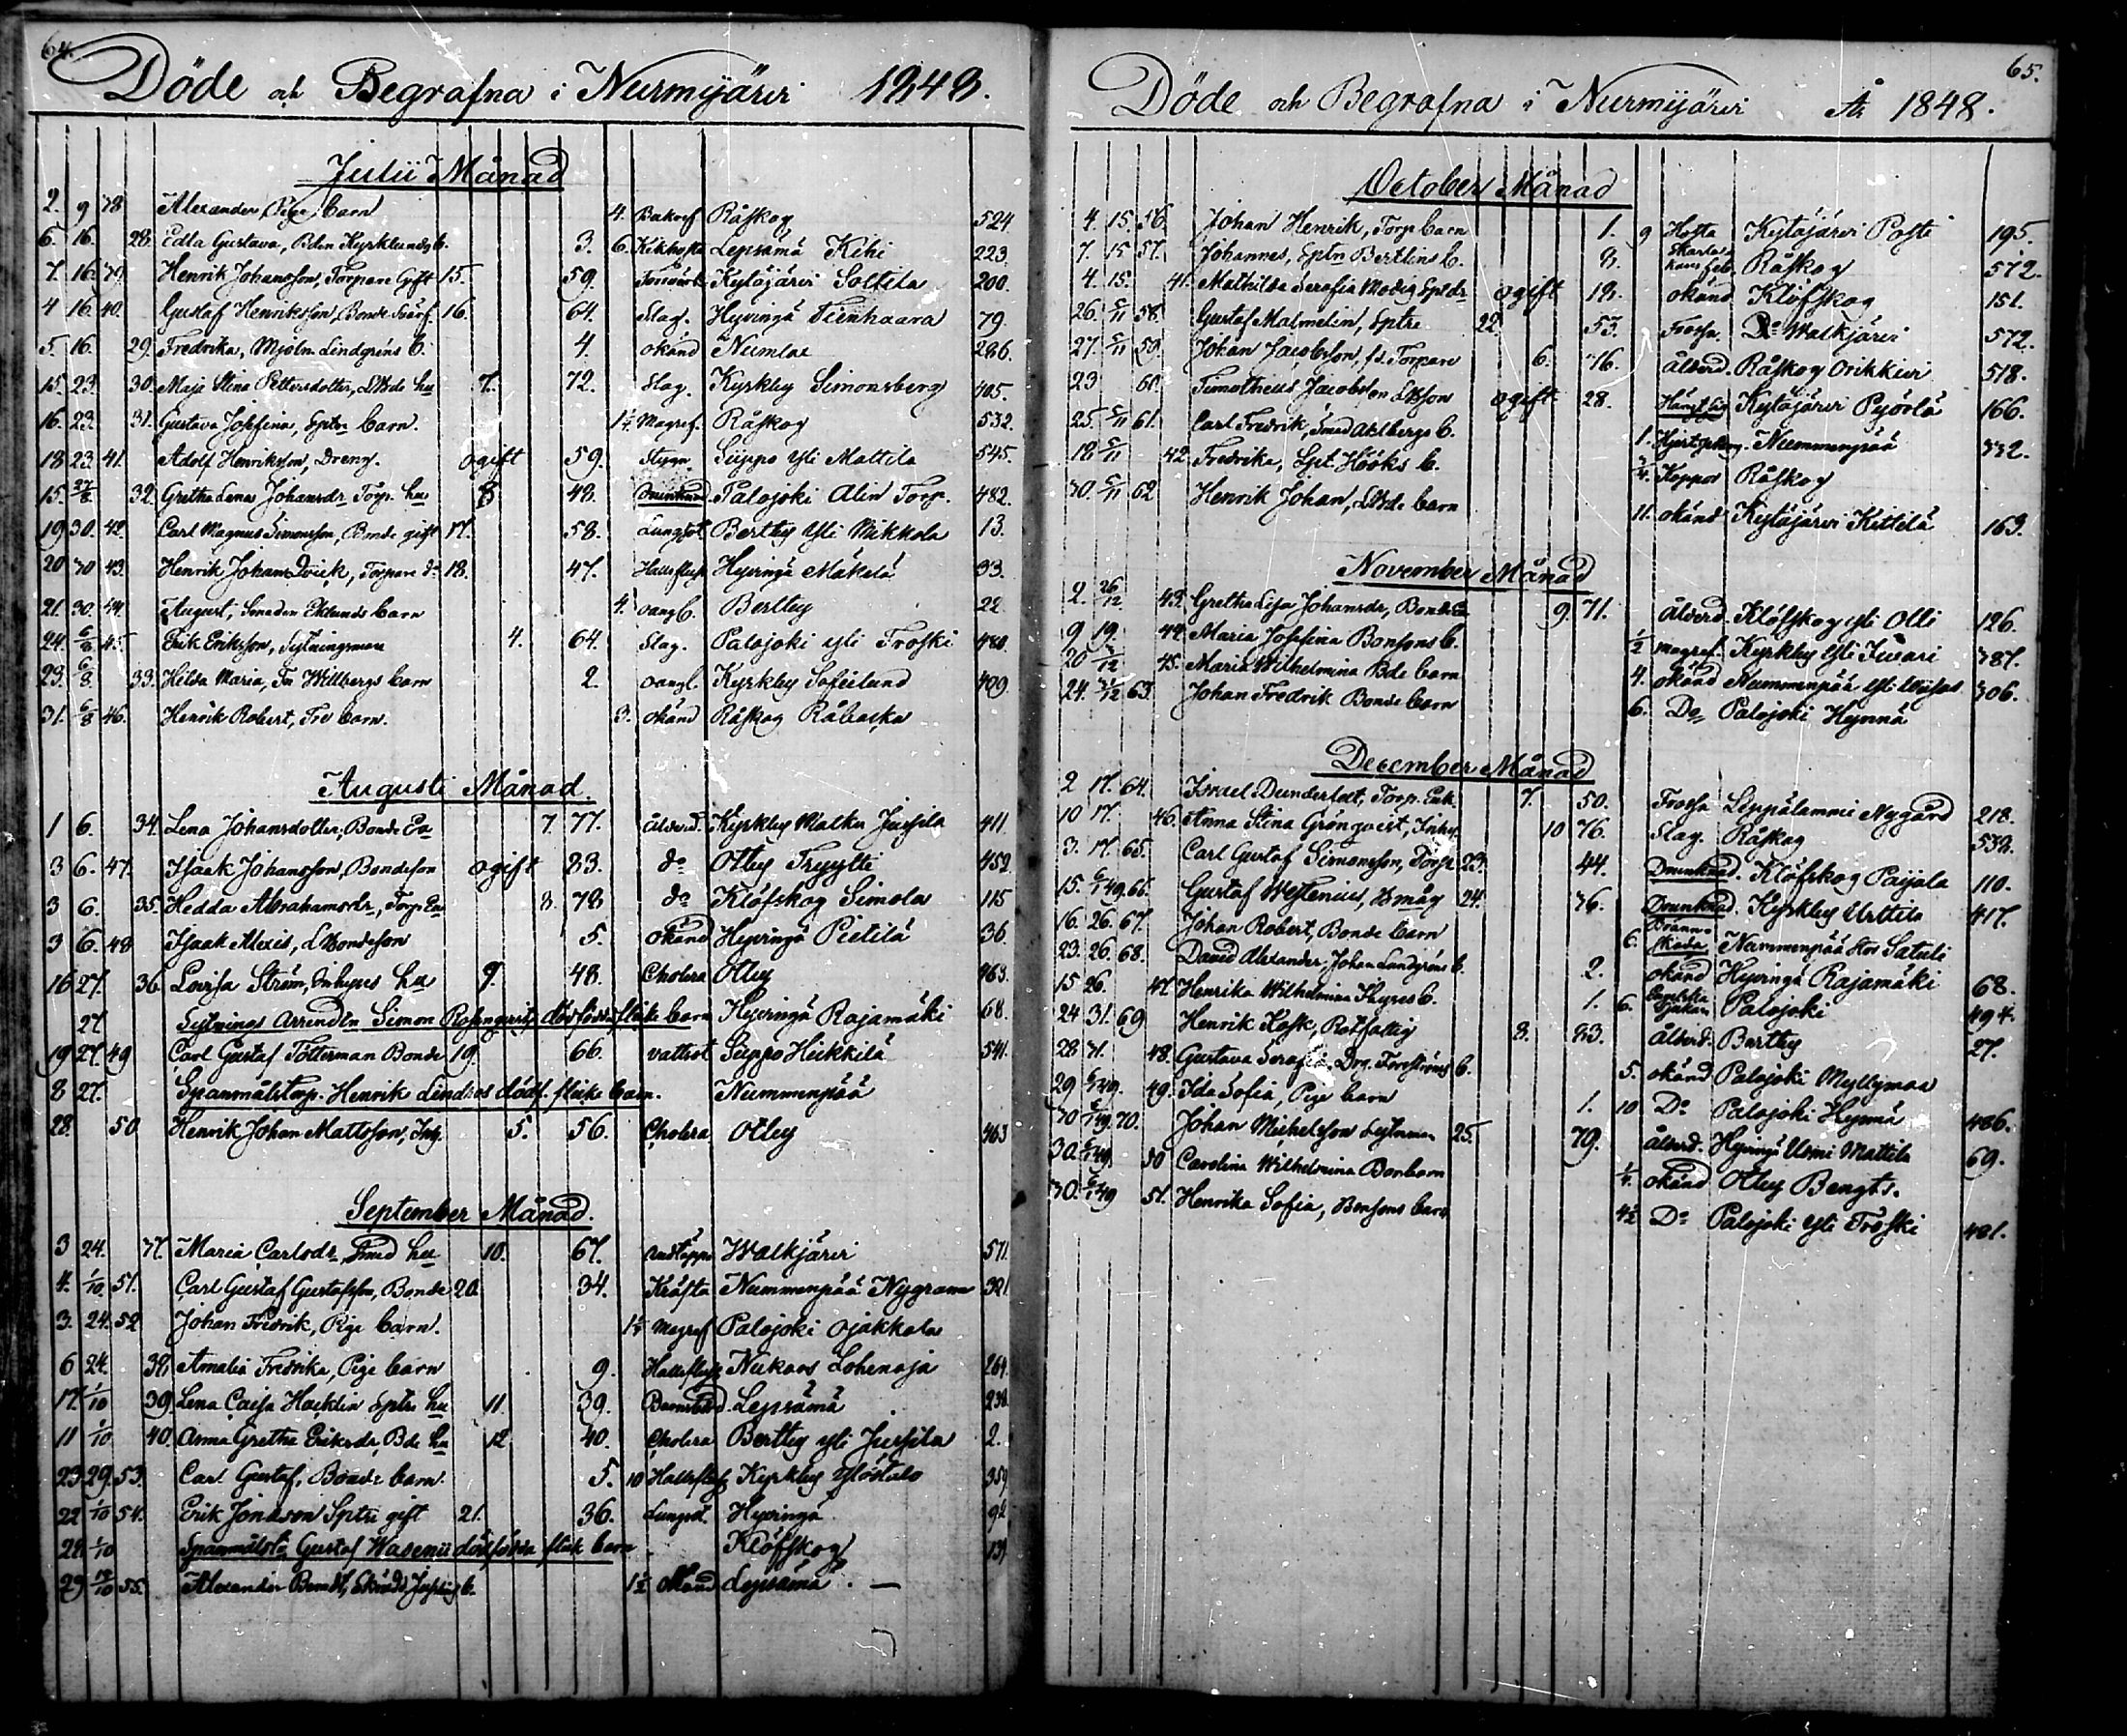 64.
Döde och Begrafna i Nurmijärvi 1848.
Julii Månad
2. 9 38 Alexander, Pige barn 4. Råskog 524.
6. 16. 28. Edla Gustava, Bdn Kyrklunds b. 3. 6. Kikhosta Lepsämä Kihi 223.
7. 16. 39. Henrik Johansson, Torpare Gift 15. 59. Kytäjärvi Soltila 200.
4 16 40. Gustaf Henriksson, Bonde 16. 64. Slag. Hyvingä Tienhaara 79.
5. 16. 29. Fredrika, Mjöln. Lindgrens b. 4. okänd Numlax 286.
15. 23. 30. Maja Stina Pettersdotter, hu 7. 72. Slag. Kyrkby Simonsberg 405.
16. 23. 31. Gustava Josefina, Sptrs barn. 1¼ Magref. Råskog 532.
18 23. 41. Adolf Henriksson, Dreng. ogift 59. Styng Seippo Yli Mattila 545.
15. 27/8 32. Gretha Lena Johansdr Torp. hu 8 48. Drunknad Palojoki Alin Torp. 482.
19 30. 42. Carl Magnus Simonsson, Bonde gift 17. 58. Lungsot Berthy Yli Mikkola 13.
20 30 43. Henrik Johan, Torpare do 18. 47. Hyvingä Mäkelä 33.
21. 30. 44. August, Smeden Eklunds barn 4. oang b. Berthy 22.
24. 6/8 45. Erik Eriksson, Sytningsman 4. 64. Slag. Palojoki yli Troski 480.
23. 6/8. 33. Hilda Maria, Fn Willbergs barn 2. oangl. Kyrkby Sofielund 409.
31. 6/8 46. Henrik Robert, barn. 3. okänd Råskog Råbacka
Augusti Månad.
1 6. 34. Lena Johansdotter, Bonde Ea 7 77. ålderd. Kyrkby Matku Jussila 411
3 6. 47. Isaak Johansson, Bondeson ogift 83. do Otlby 452.
3 6. 35. Hedda Abrahamsdr, Torp Ea 8. 78 do Klöfskog Simola 115
3 6. 48 Isaak Alexis, Bondeson 5. okänd Hyvingä Pietilä 36.
16 27. 36 Lovisa Ström, Inhyses hu 9. 48. Cholera Otlby 463.
27 Sytnings Arrendtn Simon Rosenqvists dödfödda flicke barn Hyvingä Rajamäki 68.
19 27. 49 Carl Gustaf Totterman Bonde 19. 66. vattsot Seippo Heikkilä 541.
8 27. Spanmålstorp. Henrik Lindros dödf. flicke barn. Nummenpää
28. 50 Henrik Johan Mattsson, Inh. 5. 56. Cholera Otlby 463
September Månad.
3 24. 37. Maria Carlsdr, Smed hu 10. 67. andtäppa Walkjärvi 571.
4. 1/10 51. Carl Gustaf Gustafsson, Bonde 20. 34. Kräfta Nummenpää Nygrann 321.
3. 24. 52 Johan Fredrik, Pige barn. 1¼ Magref Palojoki Ojakkala
6 24. 38. Amalia Fredrika, Pige barn 9. Nukars Lohenoja 264.
17. 1/10 39. Lena Caisa Hacklin Sptrs hu 11. 39. Barnsbörd. Lepsämä 238.
11 1/10 40. Anna Gretha Eriksdr, Bde hu 12. 40. Cholera Berthy yli Jussila 2.
23 29. 53. Carl Gustaf, Bonde barn. 5. 10 Kyrkby Ylöstalo 359.
22 1/10 54. Erik Jonasson Sptr gift 21. 36. Lungsot. Hyvingä 92
22 1/10 Spanmålst. Gustaf Wasenii dödfödda flick barn Klöfskog 139
29 15/10 55. Alexander 1½ okänd Lepsämä. —
65.
Döde och Begrafna i Nurmijärvi År 1848.
October Månad
4. 15. 56. Johan Henrik, Torp barn 1. 9 Hosta Kytäjärvi Posti 195.
7. 15 57. Johannes, Sptrs Bertlins b. 8. Råskog 572.
4. 15. 41. Mathilda Serafia Modig Sptdr ogift 18. okänd Klöfskog 151.
26. 5/11 58. Gustaf Malmelin, Sptre. 22. 53. Frossa. Do Walkjärvi 572.
27. 5/11 59. Johan Jacobsson, fd. Torpare 6. 76. ålderd. Råskog Orikkivi 518.
23 60. Timotheus Jacobsson ogift 28. Hängt sig Kytäjärvi Pyörlä 166.
25. 5/11 61. Carl Fredrik, Smed Ahlbergs b. 1. Nummenpää 332.
18 5/11 42. Fredrika, Spt. Hööks b. 3/4. Koppor Råskog
30. 5/11 62 Henrik Johan, barn 11. okänd Kytäjärvi Kittilä 163.
November Månad
2. 26/12 43. Gretha Lisa Johansdr, Bonde Ea 9. 71. ålderd. Klöfskog yli Olli 126.
9 19. 44. Maria Josefina Bonsons b. ½ magref. Kyrkby Yli Iivari 387.
20 3/12 45. Maria Wilhelmina Bde barn 4. okänd Nummenpää Yli 306.
24. 3/12 63. Johan Fredrik Bonde barn 6. Do Palojoki Hynnä
December Månad
2 17. 64. Israel Dunderfelt, Torp. Enk. 7. 50. Frossa Leppälammi Nygård 218.
10 17. 46. Anna Stina Grönqvist, Inhy. 10 76. Slag. Råskog 532.
3. 17. 65. Carl Gustaf Simonsson, Torp. 23. 44. Drunknad. Klöfskog Paijala 110.
15. 6/1 49. 66. Gustaf Westenius, Bsmåg 24. 36. Drunknad. Kyrkby Urttila 417.
16. 26. 67. Johan Robert, Bonde barn 6. Bränne skada Nummenpää Stor Satuli
23. 26. 68. David Alexander Johan Landgrens b. 2. okänd Hyvingä Rajamäki 68.
15 26. 47 Henrika Wilhelmina b. 1. 6. Engelska sjukan Palojoki 494.
24 31. 69 Henrik Kosk, Rotfattig 8. 83. ålderd. Berthy 27.
28 31. 48. Gustava Serafia Drg. Forsströms b. 5. okänd Palojoki Myllymaa
29 6/1 49. 49. Ida Sofia, Pige barn 1. 10 Do Palojoki Hynnä 486.
30 6/1 49. 70. Johan Michelsson Sytnman 25. 79. ålderd. Hyvingä Uimi Mattila 69.
30. 6/1 49 50 Carolina Wilhelmina Bonbarn ¼ okänd Otlby Bengts.
30. 6/1 49 51. Henrika Sofia, Bonsons barn 4½ Do Palojoki yli Troski 481.